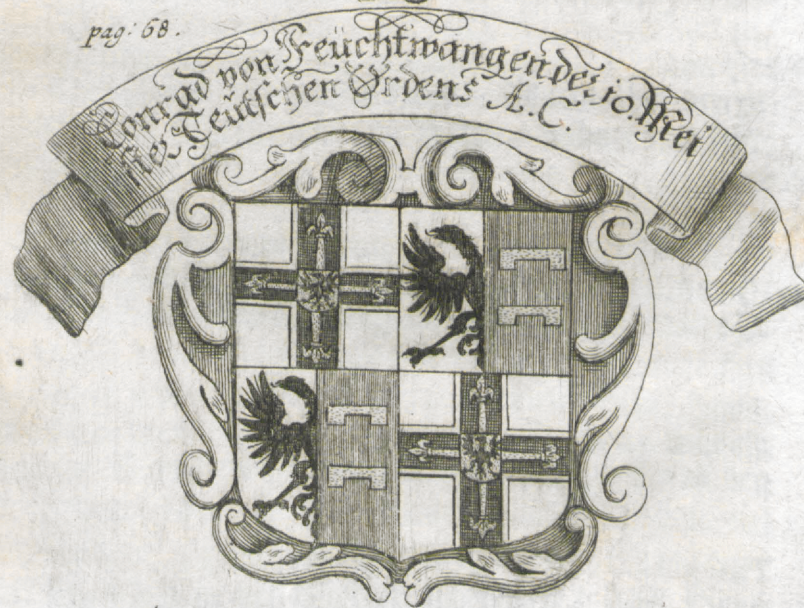 pag: 68.
Conrad von Feüchtwangen der 10. Mei
ster Teütschen Ordens A. C.